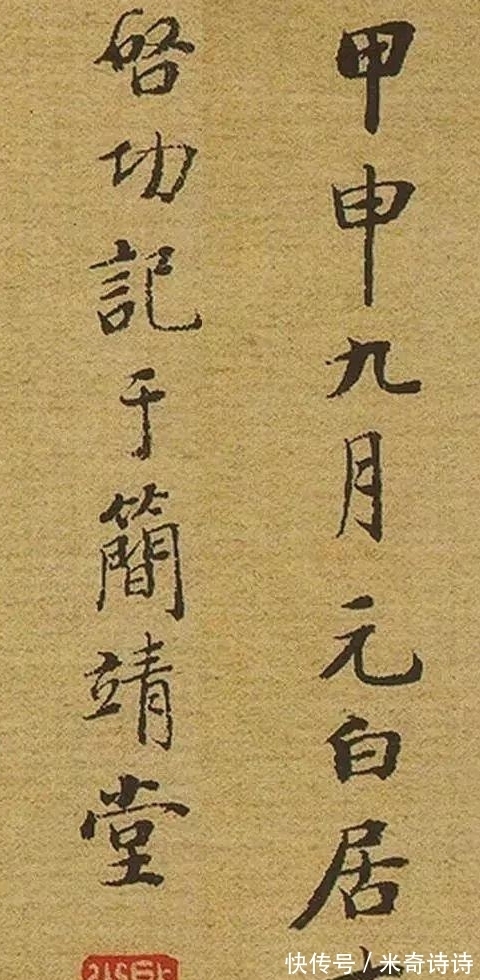 甲申九月元白居
啓功記于簡靖堂
快传号/米奇诗诗